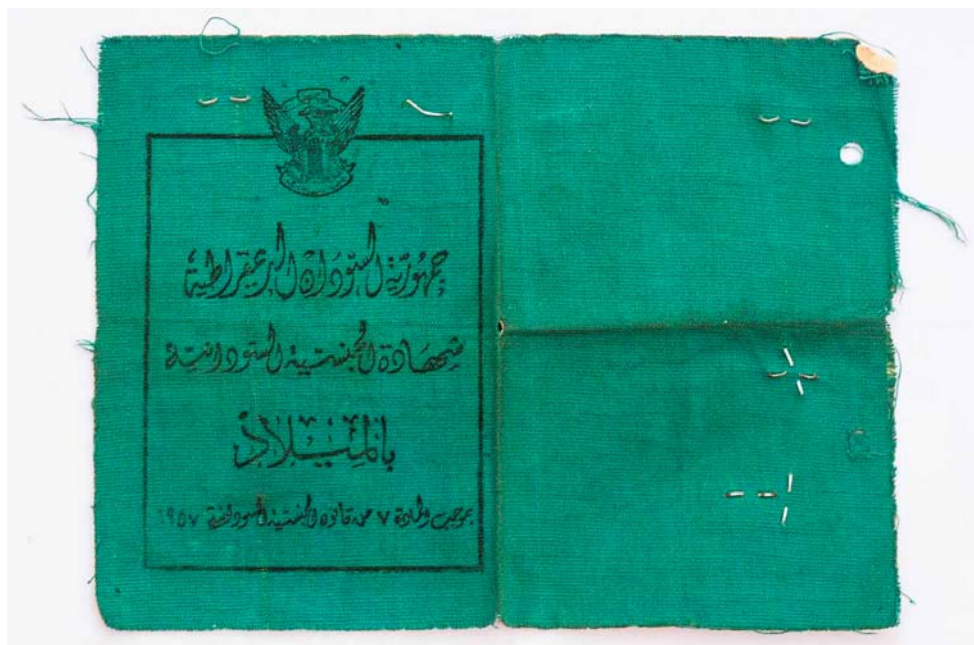 جمهورية السودان الديمقراطية
شهادة الجنسية السودانية
بالميلاد
بموجب المادة ٧ من قانون الجنسية السودانية ١٩٥٧